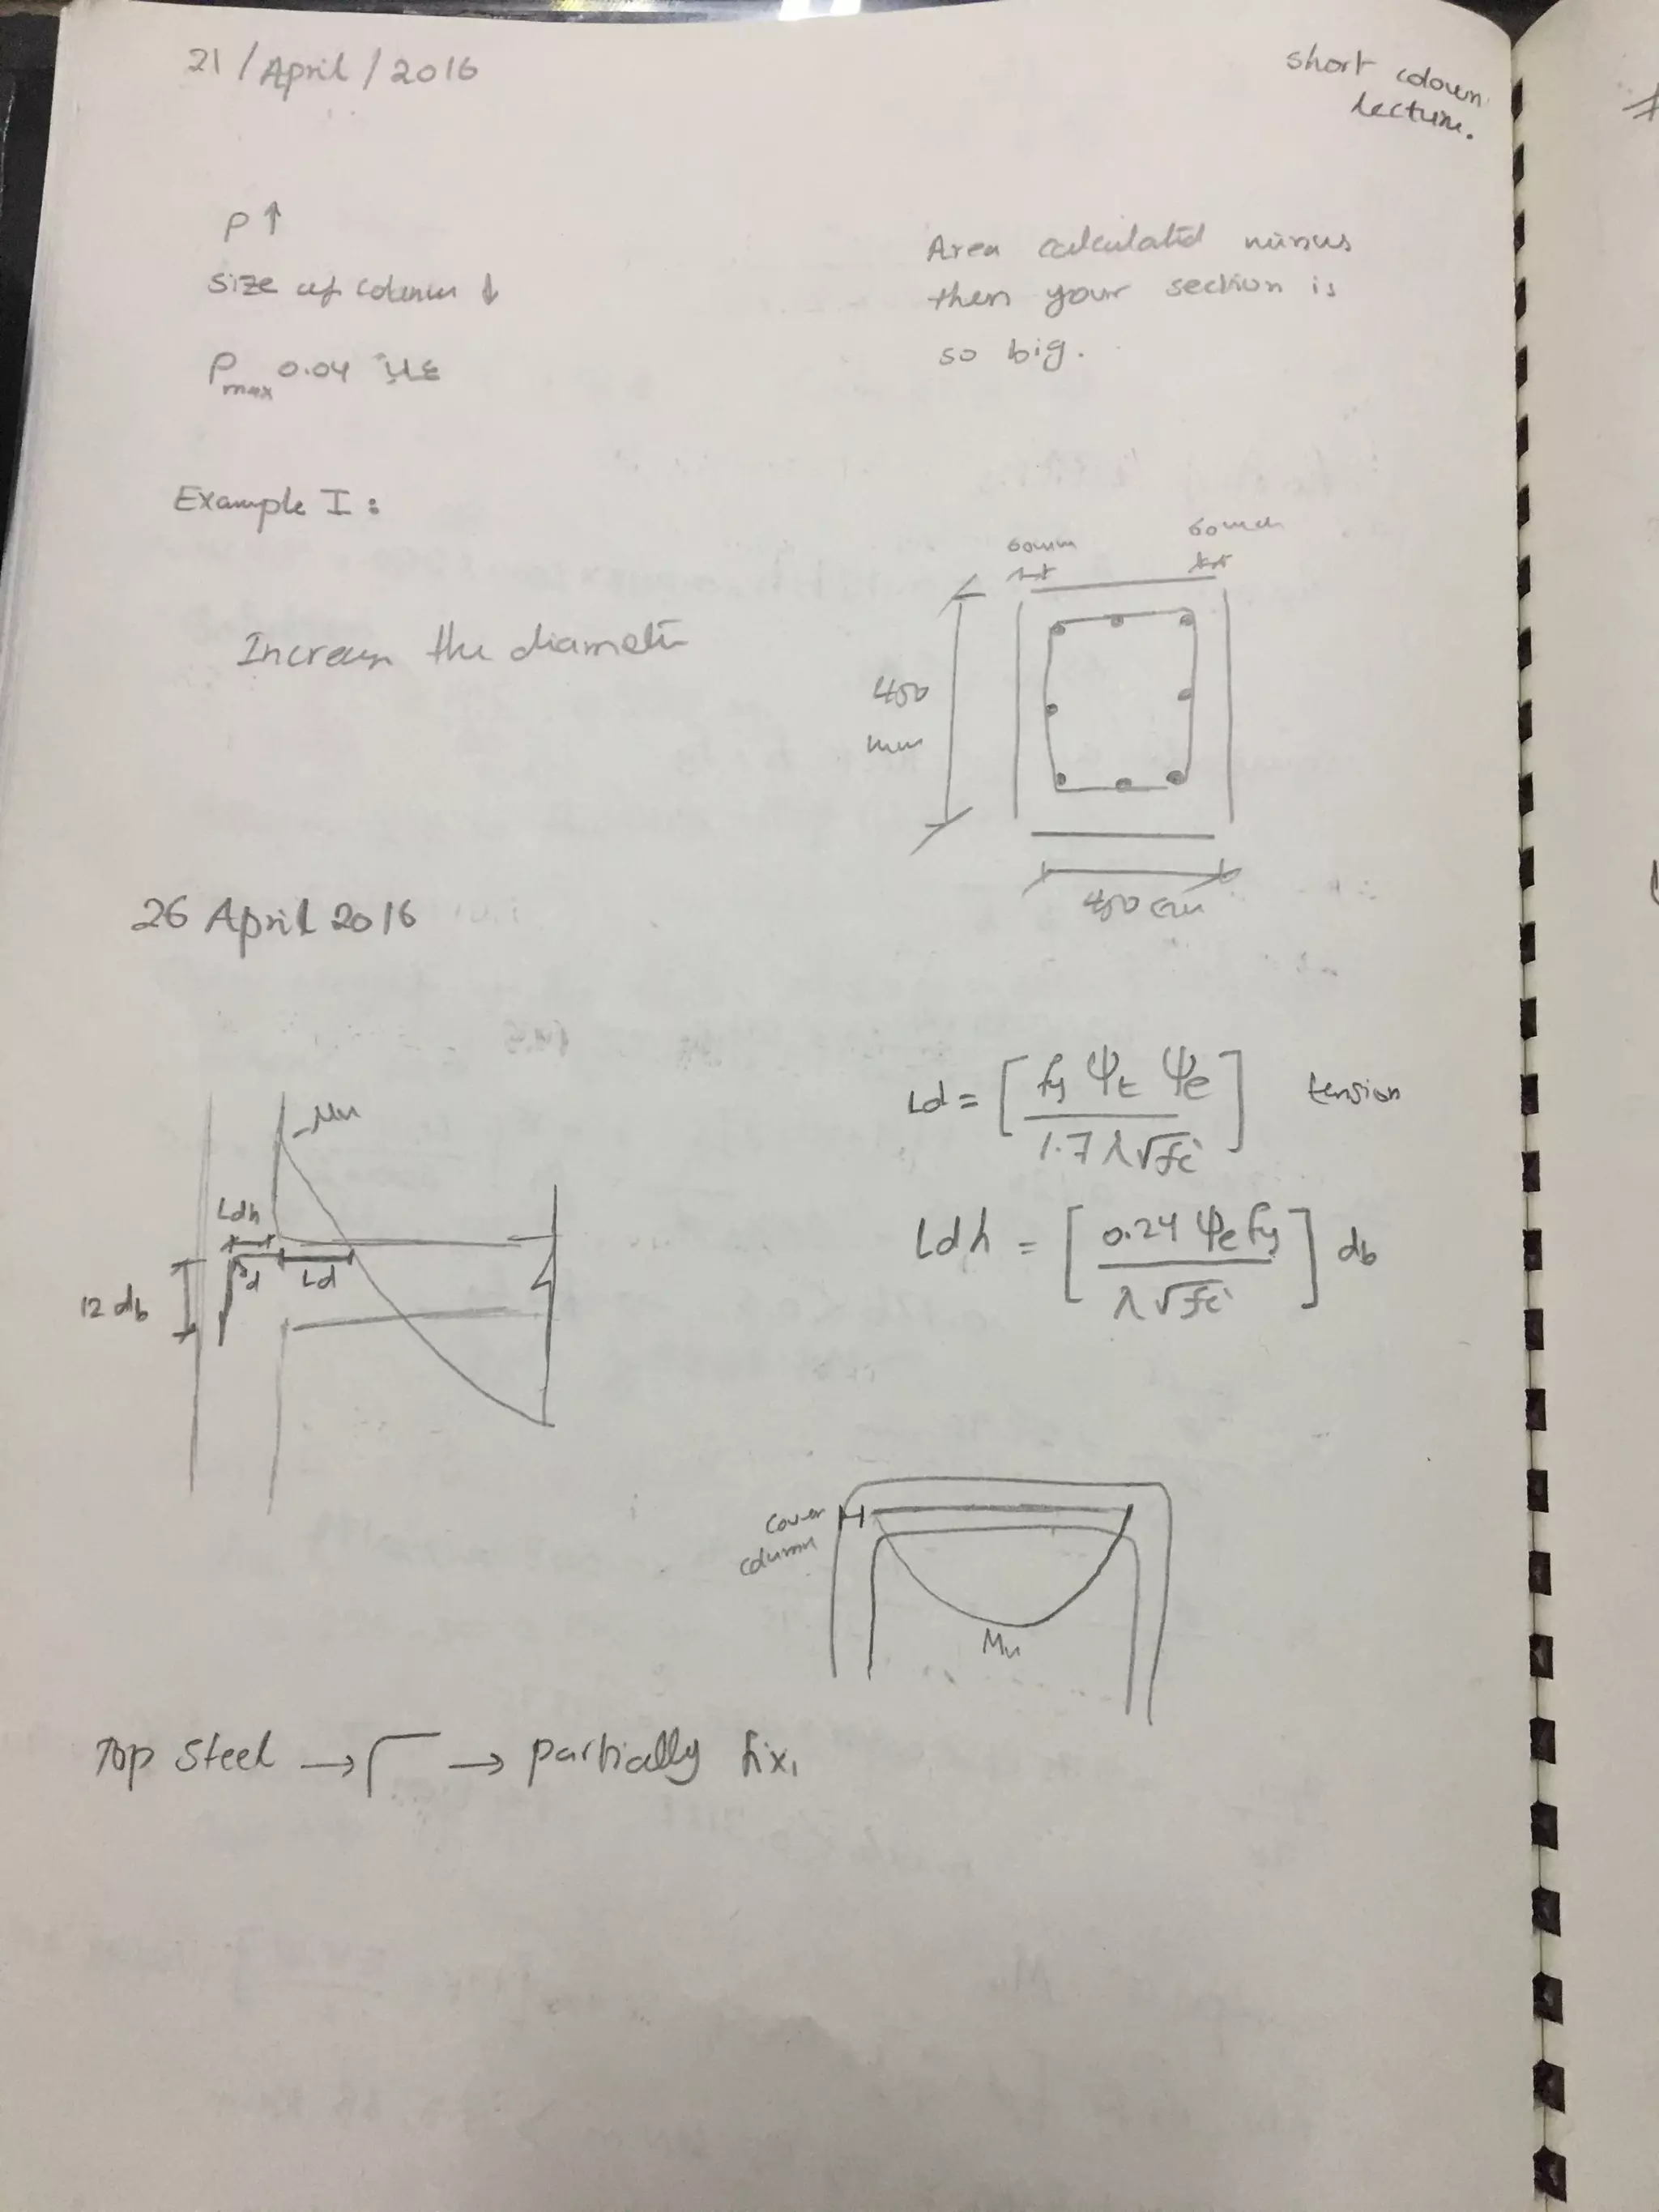 21/April/2016
short coloum
lecture.
ρ↑
size of column ↓
ρmax 0.04
Area calculated minus
then your section is
so big.
Example I:
60mm
60mm
Increase the diameter
450
mm
450 cm
26 April 2016
-Mu
Ldh
d
Ld
12 db
Ld = [fy Ψt Ψe / 1.7 λ√fc'] tension
Ldh = [0.24 Ψe fy / λ√fc'] db
Cover
column
Mu
Top Steel → ┌ → partially fix.